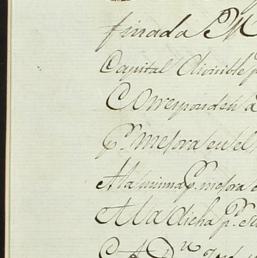 finada M
Capital divisible p
Corresponden a
Pr. mejora en el
A la misma pr. mejora e
A la dicha pr.